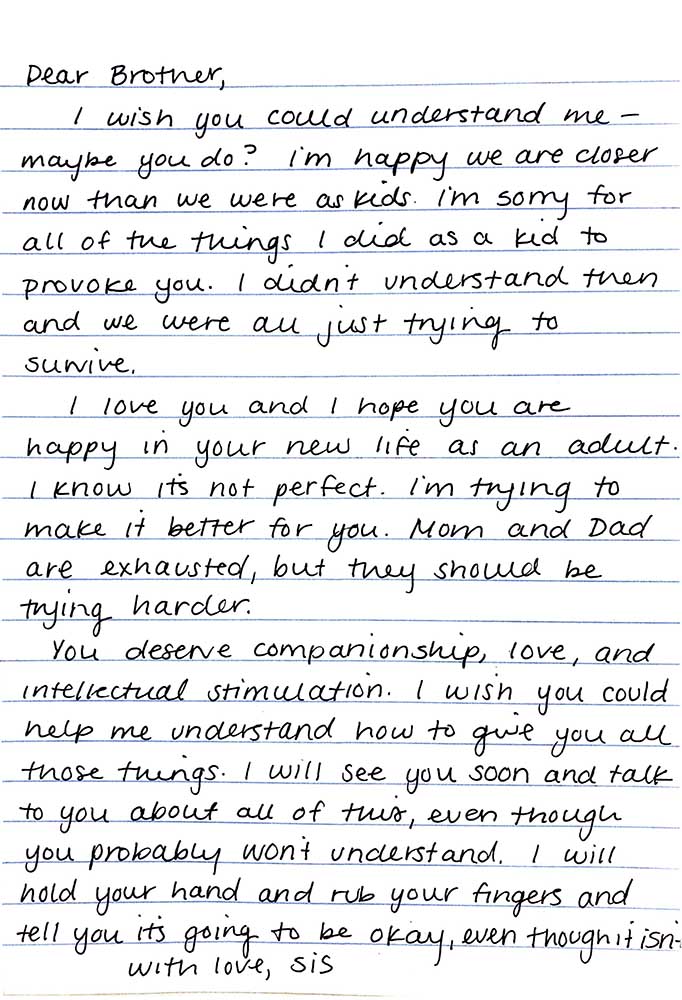 Dear Brother,
I wish you could understand me –
maybe you do? I'm happy we are closer
now than we were as kids. I'm sorry for
all of the things I did as a kid to
provoke you. I didn't understand then
and we were all just trying to
survive.
I love you and I hope you are
happy in your new life as an adult.
I know it's not perfect. I'm trying to
make it better for you. Mom and Dad
are exhausted, but they should be
trying harder.
You deserve companionship, love, and
intellectual stimulation. I wish you could
help me understand how to give you all
those things. I will see you soon and talk
to you about all of this, even though
you probably won't understand. I will
hold your hand and rub your fingers and
tell you it's going to be okay, even though it isn't
with love, sis